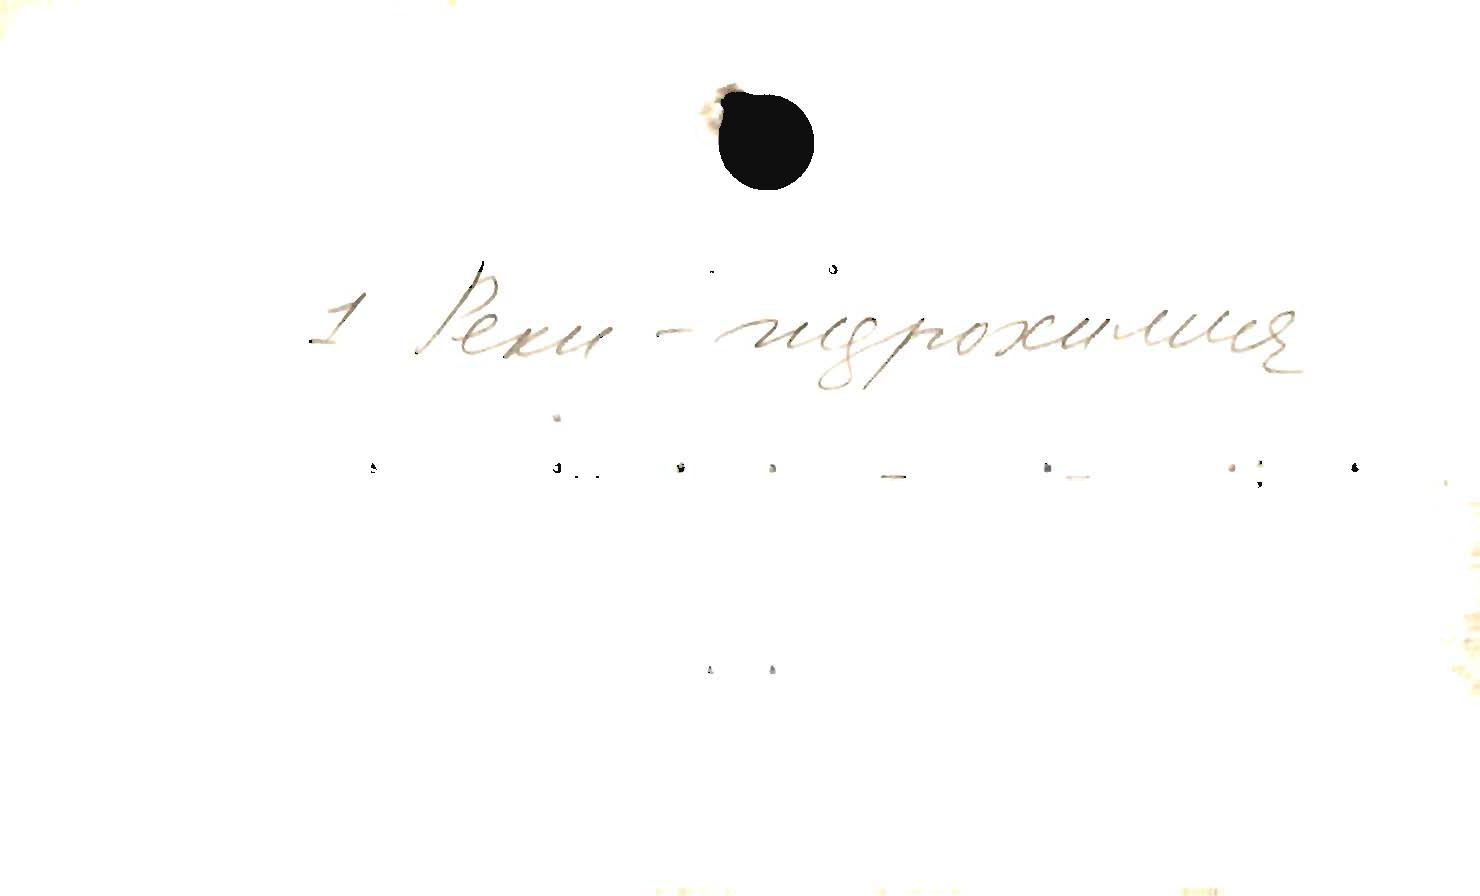 1 Реки - гидрохимия